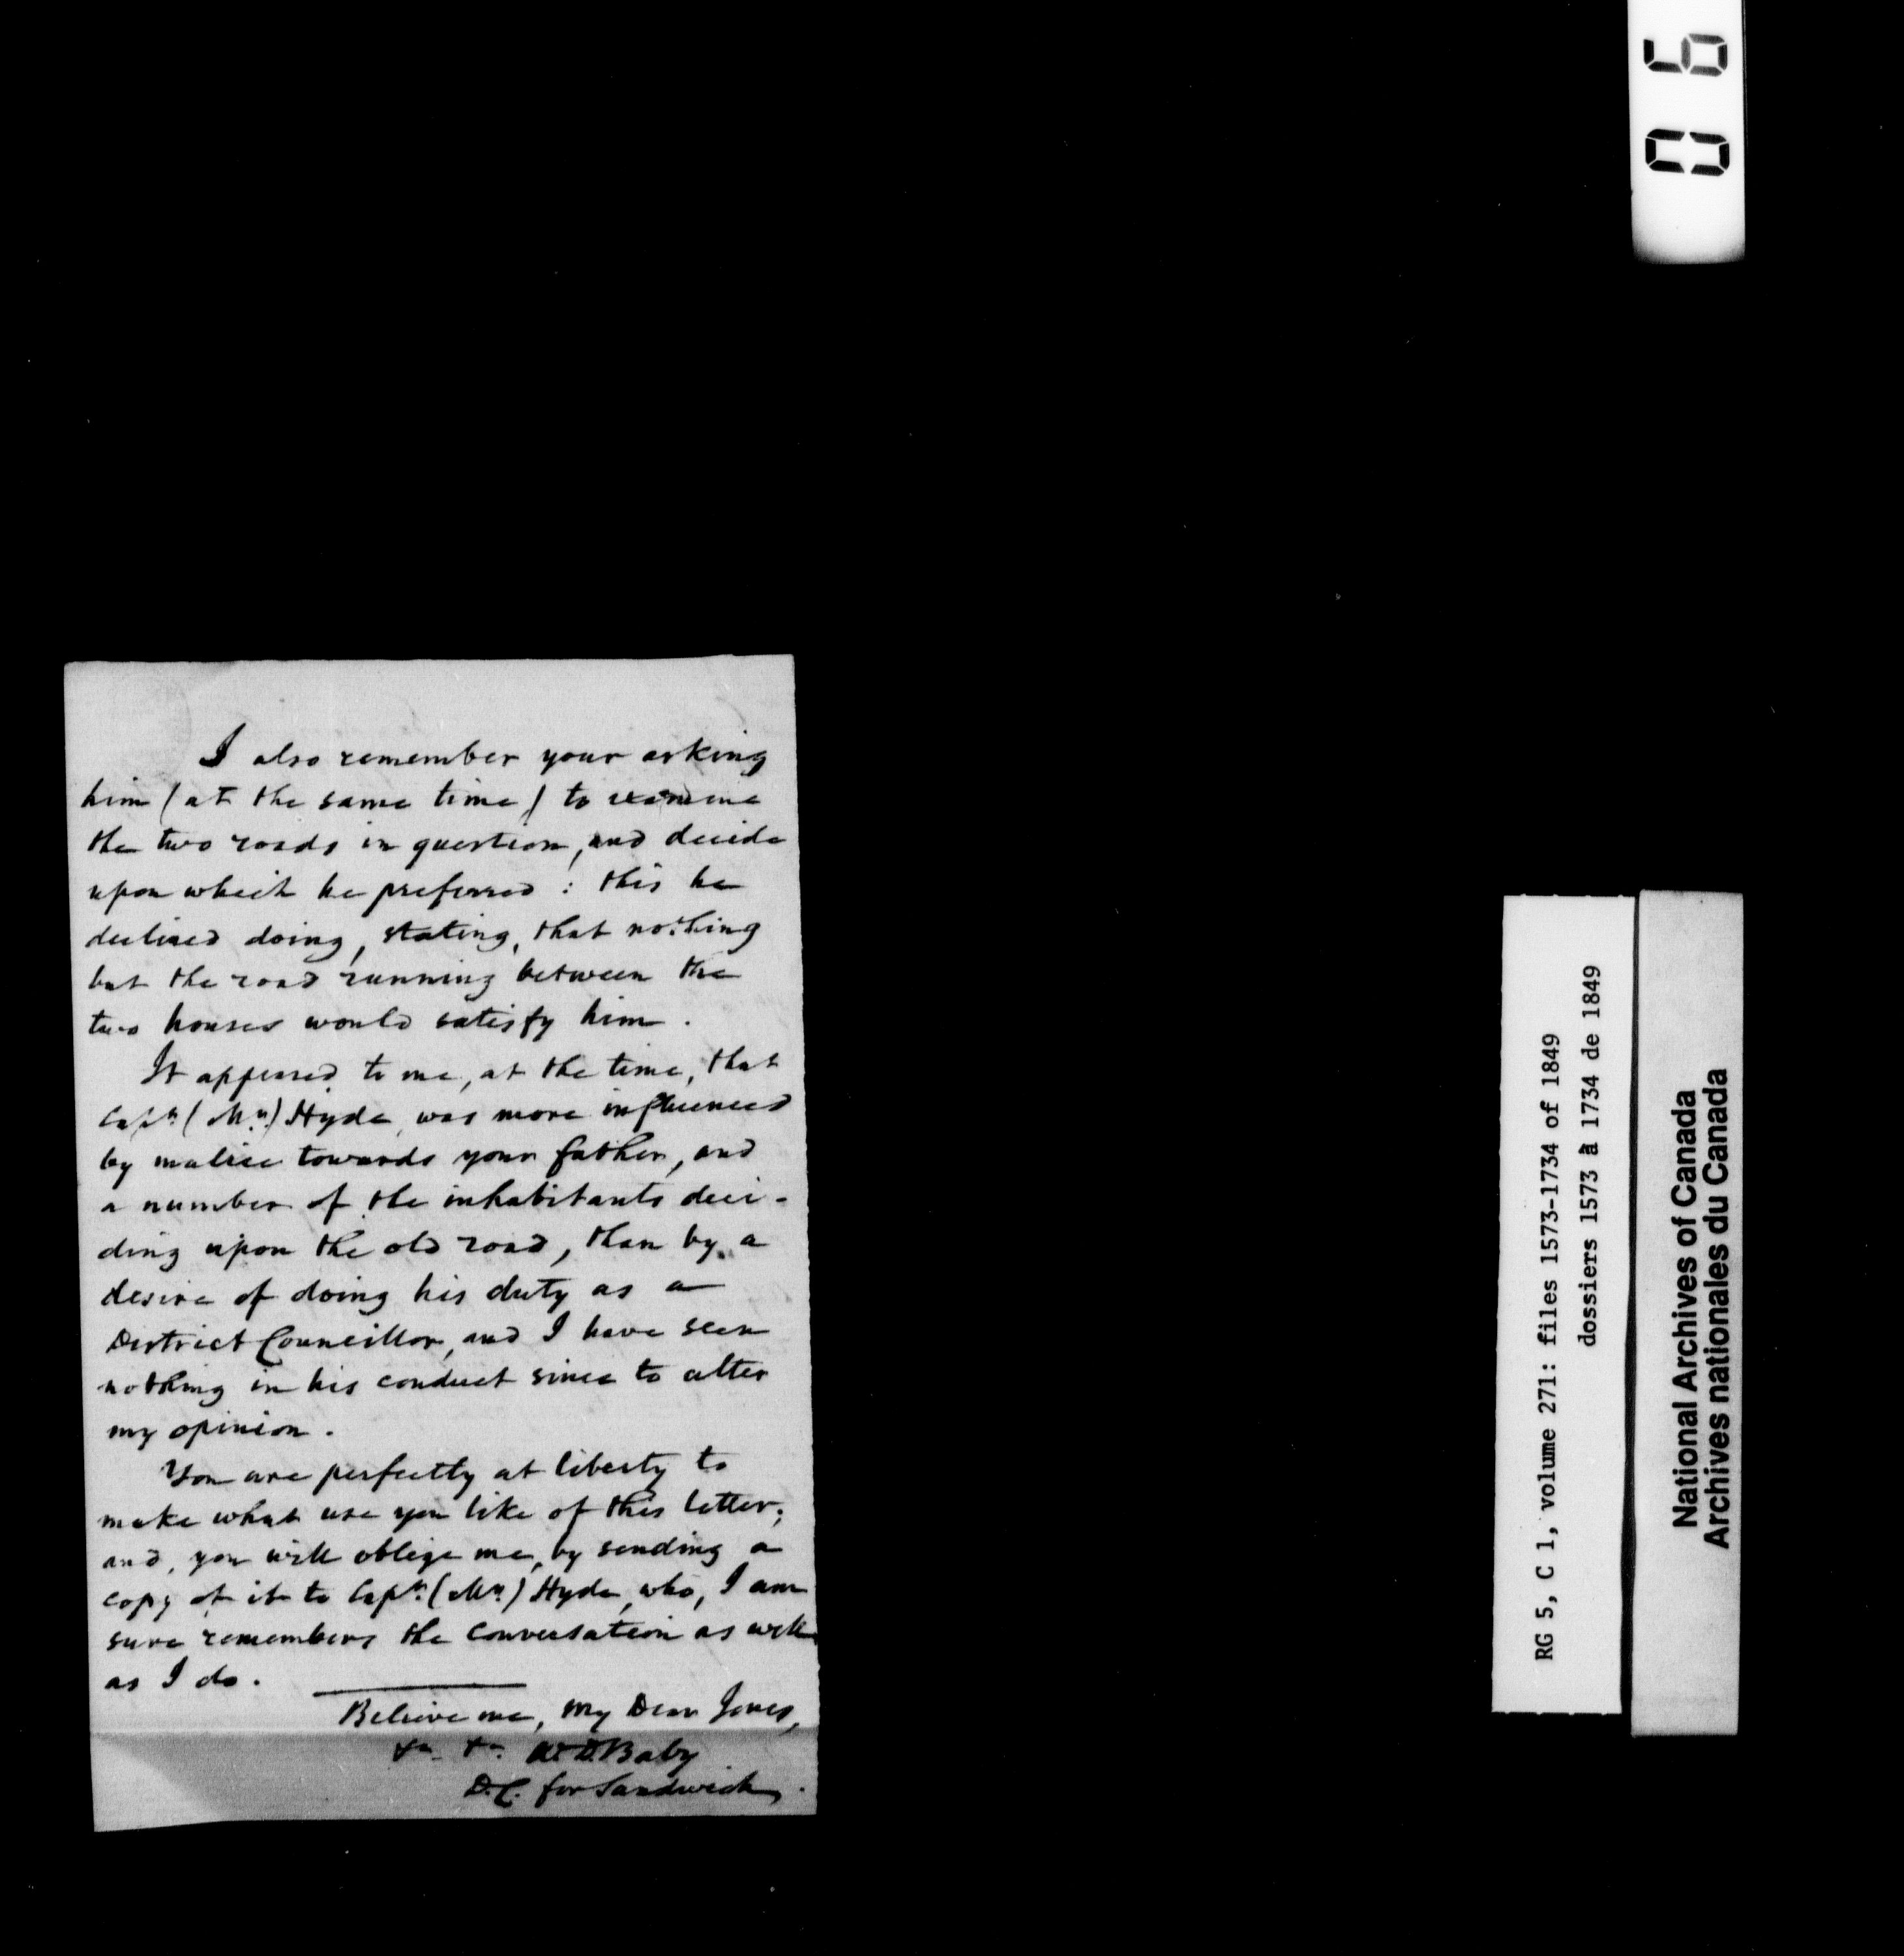 I also remember your asking
him (at the same time) to examine
the two roads in question, and decide
upon which he preferred : this he
declined doing, stating, that nothing
but the road running between the
two houses would satisfy him.
It appeared to me, at the time, that
Capt. (Mr.) Hyde, was more influenced
by malice towards your father, and
a number of the inhabitants deci-
ding upon the old road, than by a
desire of doing his duty as a
District Councillor, and I have seen
nothing in his conduct since to alter
my opinion.
You are perfectly at liberty to
make what use you like of this letter;
and, you will oblige me, by sending a
copy of it to Capt. (Mr.) Hyde, who, I am
sure remembers the conversation as well
as I do.
Believe me, My Dear Jones,
&c. &c. W. D. Baby
D.C. for Sandwich.
06
RG 5, C 1, volume 271: files 1573-1734 of 1849
dossiers 1573 à 1734 de 1849
National Archives of Canada
Archives nationales du Canada